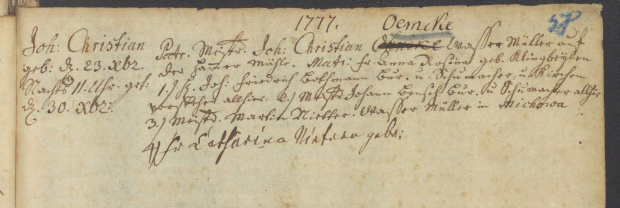 1777. Oemcke
Joh: Christian
geb: d. 23. Xbr
Nachts 11. Uhr. get:
d. 30. Xbr:
Patr. Mstr. Joh: Christian Wasser Müller auf
der Hammer Mühle. Matr: Fr Anna Rosina geb. Klingbeilen
1.) H. Joh: Friedrich Bothmann Bür. u Schumacher u Kirchen
vorsteher allhier. 2.) Mstr Johann Bensch Bür. u Schumacher allhier
3.) Mstr. Martin Wasser Müller in Michowa
4) Fr Catharina geb: